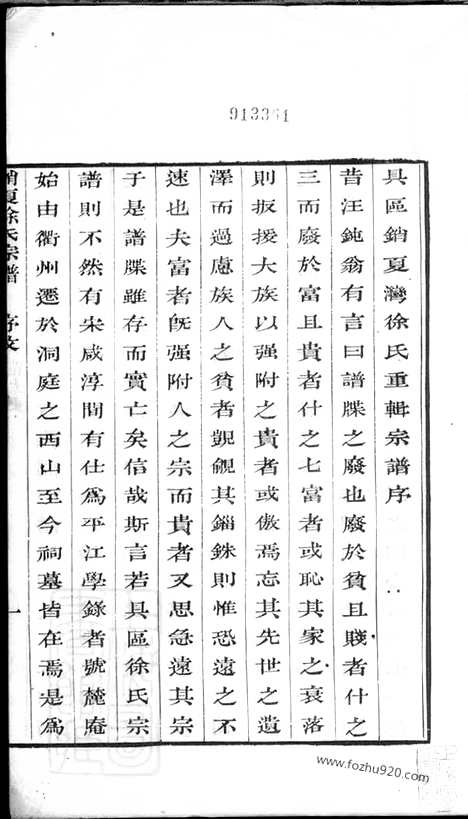 913361
具區銷夏灣徐氏重輯宗譜序
昔汪鈍翁有言曰譜牒之廢也廢於貧且賤者什之
三而廢於富且貴者什之七富者或恥其家之衰落
則扳援大族以强附之貴者或傲焉忘其先世之遺
澤而過慮族人之貧者覬覦其錙銖則惟恐遠之不
速也夫富者旣强附人之宗而貴者又思急遠其宗
于是譜牒雖存而實亡矣信哉斯言若具區徐氏宗
譜則不然有宋咸淳間有仕爲平江學錄者號麓庵
始由衢州遷於洞庭之西山至今祠墓皆在焉是爲
銷夏徐氏宗譜 序文 一
www.fozhu920.com